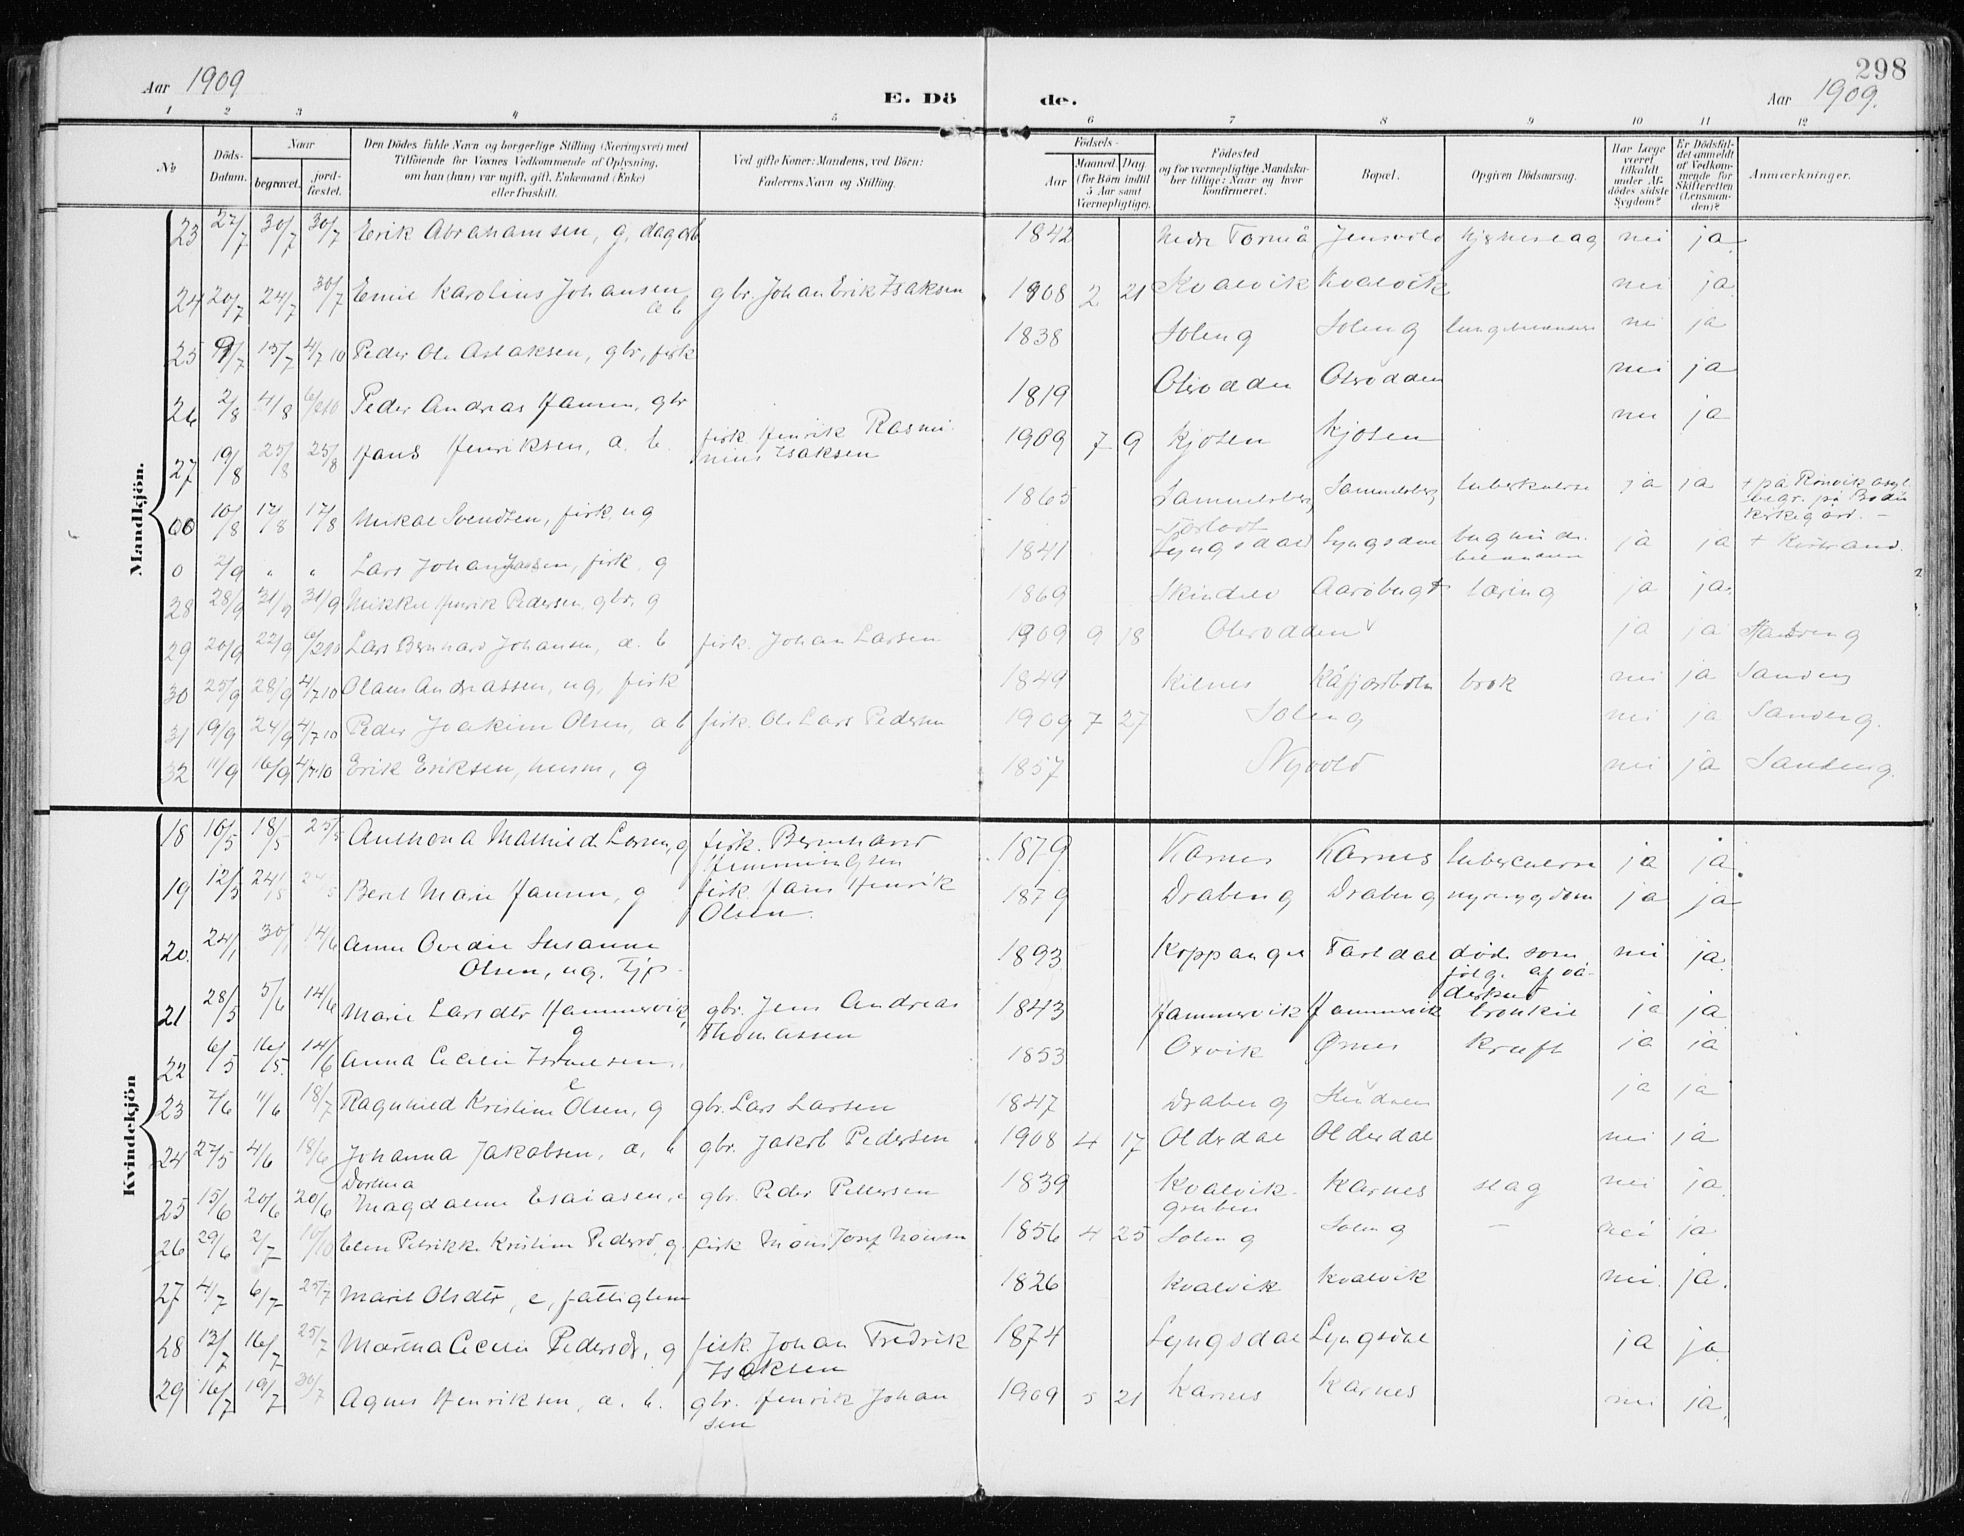 298
Aar 1909
E. Dö
de.
Aar 1909.
1 2 3 4 5 6 7 8 9 10 11 12
No
Döds-
Datum.
Naar
begravet.
jord-
fæstet.
Den Dödes fulde Navn og borgerlige Stilling (Næringsvei) med
Tilföiende for Voxnes Vedkommende af Oplysning,
om han (hun) var ugift, gift, Enkemand (Enke)
eller fraskilt.
Ved gifte Koner: Mandens, ved Börn:
Faderens Navn og Stilling.
Födsels-
Aar
Maaned
Dag
(for Börn indtil
5 Aar samt
Værnepligtige).
Födested
og for værnepligtige Mandska-
ber tillige: Naar og hvor
konfirmeret.
Bopæl.
Opgiven Dödsaarsag.
Har Læge
været
tilkaldt
under Af-
dödes sidste
Sygdom?
Er Dödsfal-
det anmeldt
af Vedkom-
mende for
Skifteretten
(Lensman-
den)?
Anmærkninger.
Mandkjön.
23 27/7 30/7 30/7 Erik Abrahamsen, g, dagarb 1842 Nedre Tormå Jensvold hjerneslag nei ja
24 20/7 24/7 30/7 Emil Karolius Johansen gbr. Johan Erik Isaksen 1908 2 21 Kvalvik Kvalvik nei ja
a b
25 9/7 15/7 4/7 10 Peder Ole Aslaksen, gbr, fisk 1838 Soleng Soleng nei ja
26 2/8 4/8 Peder Andreas Hansen, gbr 1819 Oterodden Oterodden nei ja
27 19/8 25/8 25/8 Hans Henriksen, a. b. fisk. Henrik Rasmi- 1909 7 9 Kjosen Kjosen nei ja
nius Isaksen
00 10/8 17/8 17/8 Mikal Svendsen, fisk, ug 1865 Sammelsberg Sammelsberg tuberkulose ja ja + på Rønvik asyl
begr. på Bodin
kirkegård. –
0 2/9 " " Lars Johan, fisk, g 1841 Lyngsdal Lyngsdal ja ja +
28 28/9 31/9 31/9 Mikkel Henrik Pedersen, gbr, g 1869 Skindelv tæring ja ja
29 20/9 22/9 Lars Bernhard Johansen, a. b fisk. Johan Larsen 1909 9 18 Oterodden ja ja
30 25/9 28/9 4/7 10 Olaus Andreassen, ug, fisk 1849 Kilnes Kåfjordbotn brok nei ja Sandeng
31 19/9 24/9 4/7 10 Peder Joakim Olsen, a b fisk. Ole Lars Pedersen 1909 7 27 Soleng nei ja Sandeng.
32 11/9 16/9 4/7 10 Erik Eriksen, husm, g 1857 Nyvold nei ja Sandeng.
Kvindekjön
18 10/5 18/5 23/5 Anthona Mathilde Larsen, g fisk. Bernhard 1879 Karnes Karnes tuberculose ja ja
Hemmingsen
19 12/5 24/5 Beret Marie Hansen, g fisk. Hans Henrik 1879 Drabeng Drabeng nyresygdom ja ja
Olsen.
20. 24/1 30/1 14/6 Anne Ovedie Susanne 1893 Koppangen døde som nei ja
Olsen, ug. Tjp. følge af vå-
deskud
21 28/5 5/6 14/6 Marie Larsdtr Hammervik, gbr. Jens Andreas 1843 Hammervik Hammervik bronkit ja ja
g Thomassen
22 6/5 16/5. 14/6 Anna Cecilie Israelsen, 1853 Oxvik Ørnes Kræft ja ja
e
23 2/6 11/6 18/7 Ragnhild Kristine Olsen, g gbr. Lars Larsen 1847 Drabeng ja ja
24 27/5 4/6 18/6 Johanna Jakobsen, a, b gbr. Jakob Pedersen 1908 4 17 Olderdal Olderdal nei ja
Dortea
25 15/6 20/6 20/6 Magdalene Esaiasen, gbr. Peder Pettersen 1839 Kvalvik- Karnes slag nei ja
gruben
26 29/6 2/7 10/10 Elen Petrikke Kristine Pedersd, g. fisk 1856 4 25 Soleng Soleng – nei ja
27 4/7 6/7 25/7 Marit Olsdtr, e, fattiglem 1826 Kvalvik Kvalvik nei ja.
28 13/7 16/7 25/7 Martha Cecelie Pedersdr, g fisk Johan Fredrik 1874 Lyngsdal Lyngsdal ja ja
Isaksen
29 16/7 19/7 30/7 Agnes Henriksen, a. b. gbr. Henrik Johan 1909 5 21 Karnes Karnes nei ja.
sen